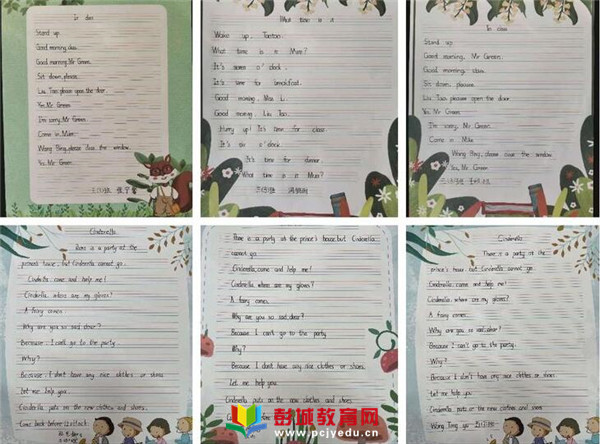 In class
Stand up.
Good morning, class.
Good morning, Mr Green.
Sit down, please.
Liu Tao, please open the door.
Yes, Mr Green.
I'm sorry, Mr Green.
Come in, Mike.
Wang Bing, please close the window.
Yes, Mr Green.
What time is it
Wake up, Taotao.
What time is it Mum?
It's seven o'clock.
It's time for breakfast.
Good morning, Miss Li.
Good morning Liu Tao.
Hurry up! It's time for class.
It's six o'clock.
It's time for dinner.
What time is it Mum?
In class
Stand up.
Good morning, Mr Green.
Good morning, class.
Sit down, please.
Liu Tao, please open the door.
Yes, Mr Green
I'm sorry, Mr Green.
Come in Mike
Wang Bing, please close the window
Yes, Mr Green.
Cinderella
There is a party at the
prince's house, but Cinderella cannot go.
Cinderella come and help me!
Cinderella, where are my gloves?
A fairy comes.
Why are you so sad, dear?
Because I can't go to the party
Why?
Because I don't have any nice clothes or shoes.
Let me help you.
Cinderella puts on the new clothes and shoes.
Come back before 12 o'clock.
There is a party at the prince's house, but Cinderella
cannot go.
Cinderella, come and help me!
Cinderella, where are my gloves?
A fairy comes.
Why are you so sad, dear?
Because I can't go to the party
Why?
Because I don't have any nice clothes or shoes.
Let me help you.
Cinderella puts on the new clothes and shoes
Cinderella
There is a party at the
prince's house, but Cinderella cannot go.
Cinderella, come and help me!
Cinderella, where are my gloves?
A fairy comes.
Why are you so sad, dear?
Because I can't go to the party.
Why?
Because I don't have any nice clothes or shoes.
Let me help you
Cinderella puts on the new clothes and shoes
彭城教育网
www.pcjyedu.cn